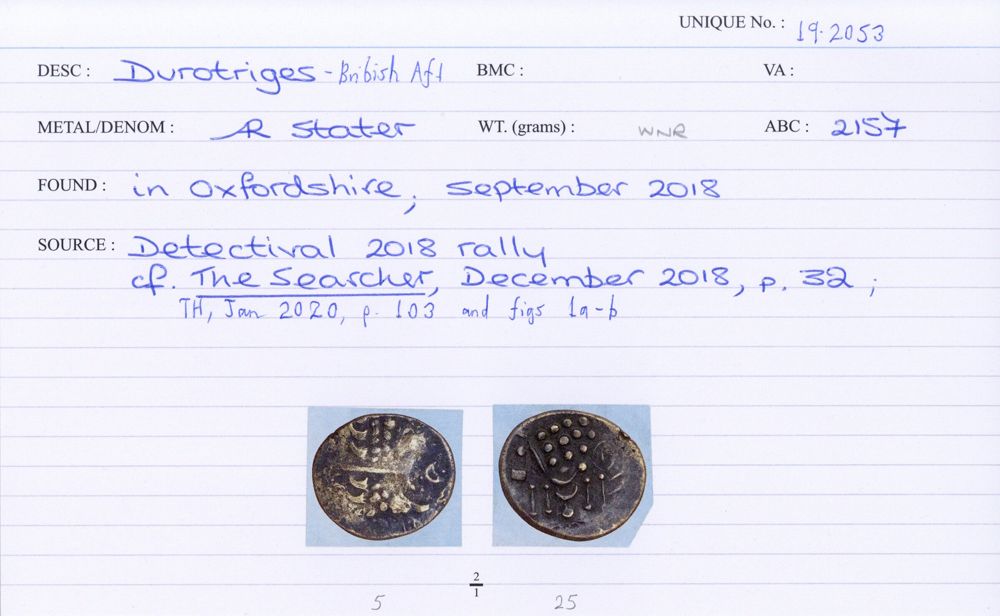 UNIQUE No. : 19.2053
DESC : Durotriges - British Af1 BMC : VA :
METAL/DENOM : AR Stater WT. (grams) : WNR ABC : 2157
FOUND : in Oxfordshire, September 2018
SOURCE : Detectival 2018 rally
cf. The Searcher, December 2018, p. 32 ;
TH, Jan 2020, p. 103 and figs 1a-b
2
1
5 25